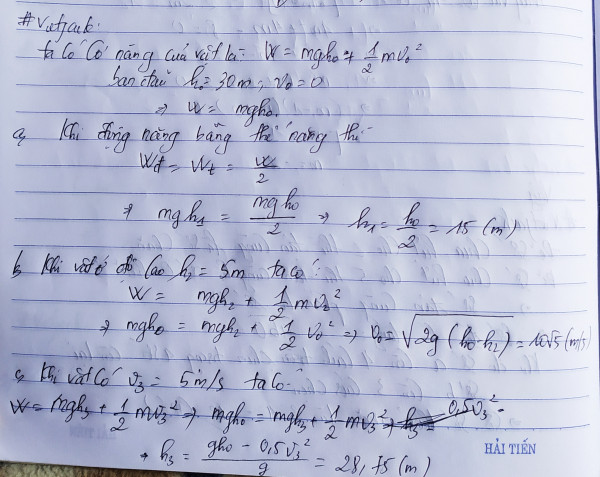 ta có cơ năng của vật là: W = mgh₀ + 1/2 mv₀²
ban đầu h₀ = 30m, v₀ = 0
⇒ W = mgh₀.
a, Khi động năng bằng thế năng thì
Wđ = Wt = W/2
⇒ mgh₁ = mgh₀/2 ⇒ h₁ = h₀/2 = 15 (m)
b, Khi vật ở độ cao h₂ = 5m ta có:
W = mgh₂ + 1/2 mv₂²
⇒ mgh₀ = mgh₂ + 1/2 v₀² ⇒ v₀ = √(2g(h₀-h₂)) = 10√5 (m/s)
c, Khi vật có v₃ = 5m/s ta có
W = mgh₃ + 1/2 mv₃² ⇒ mgh₀ = mgh₃ + 1/2 mv₃² ⇒ h₃ = 0,5v₃²
⇒ h₃ = (gh₀ - 0,5v₃²)/g = 28,75 (m)
HẢI TIẾN